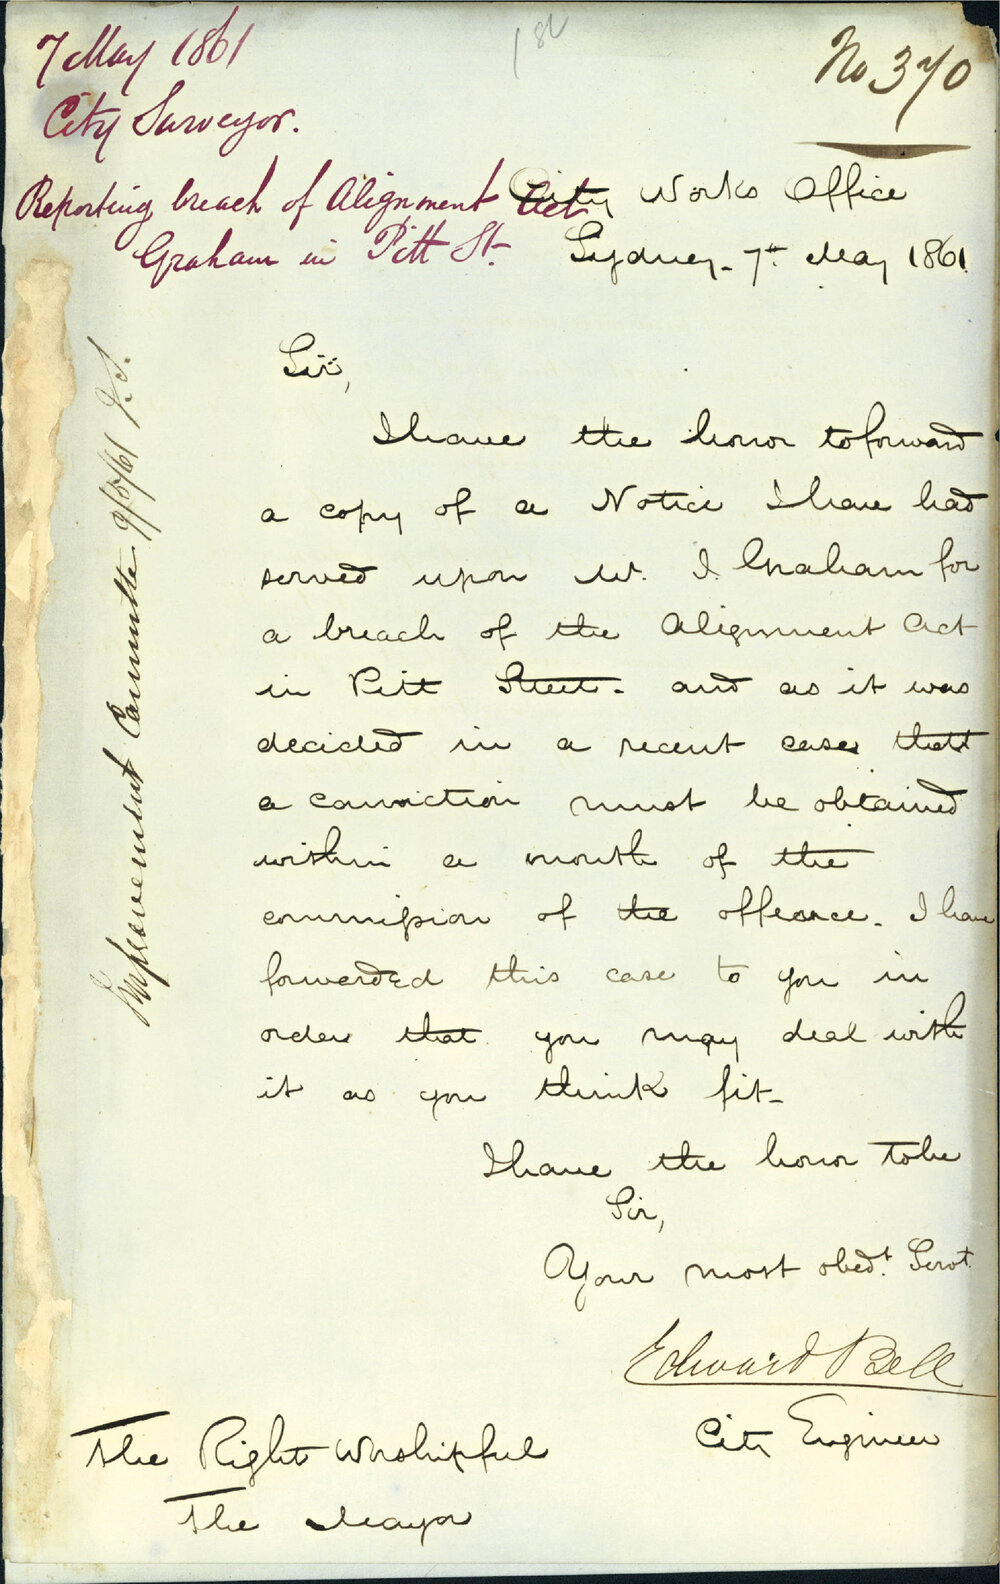 7 May 1861
City Surveyor.
Reporting breach of Alignment Act
Graham in Pitt St.
No 370
City Works Office
Sydney. 7th May 1861.
Sir,
I have the honor to forward
a copy of a Notice I have had
served upon Mr. J. Graham for
a breach of the Alignment Act
in Pitt Street. and as it was
decided in a recent case that
a conviction must be obtained
within a month of the
commission of the offence. I have
forwarded this case to you in
order that you may deal with
it as you think fit.
I have the honor to be
Sir,
Your most obedt. Servt.
Edward Bell
City Engineer
The Right Worshipful
The Mayor
Improvement Committee 9/5/61